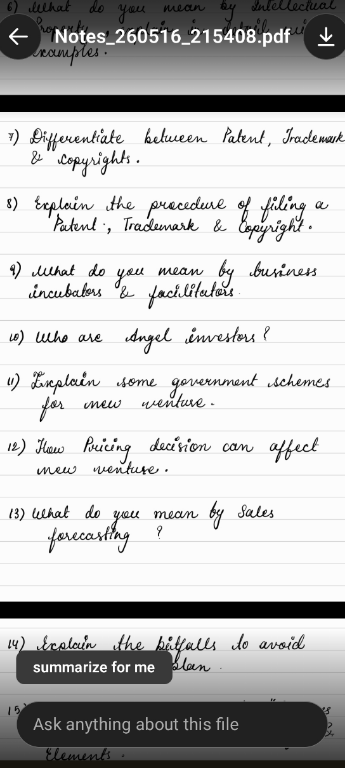 6) What do you mean by Intellectual
Property, explain in detail with
examples.
Notes_260516_215408.pdf
7) Differentiate between Patent, Trademark
& copyrights.
8) Explain the procedure of filing a
Patent, Trademark & Copyright.
9) What do you mean by business
incubators & facilitators.
10) Who are Angel investors?
11) Explain some government schemes
for new venture.
12) How Pricing decision can affect
new venture.
13) What do you mean by Sales
forecasting ?
14) Explain the pitfalls to avoid
plan.
summarize for me
15)
&
Ask anything about this file
Elements.